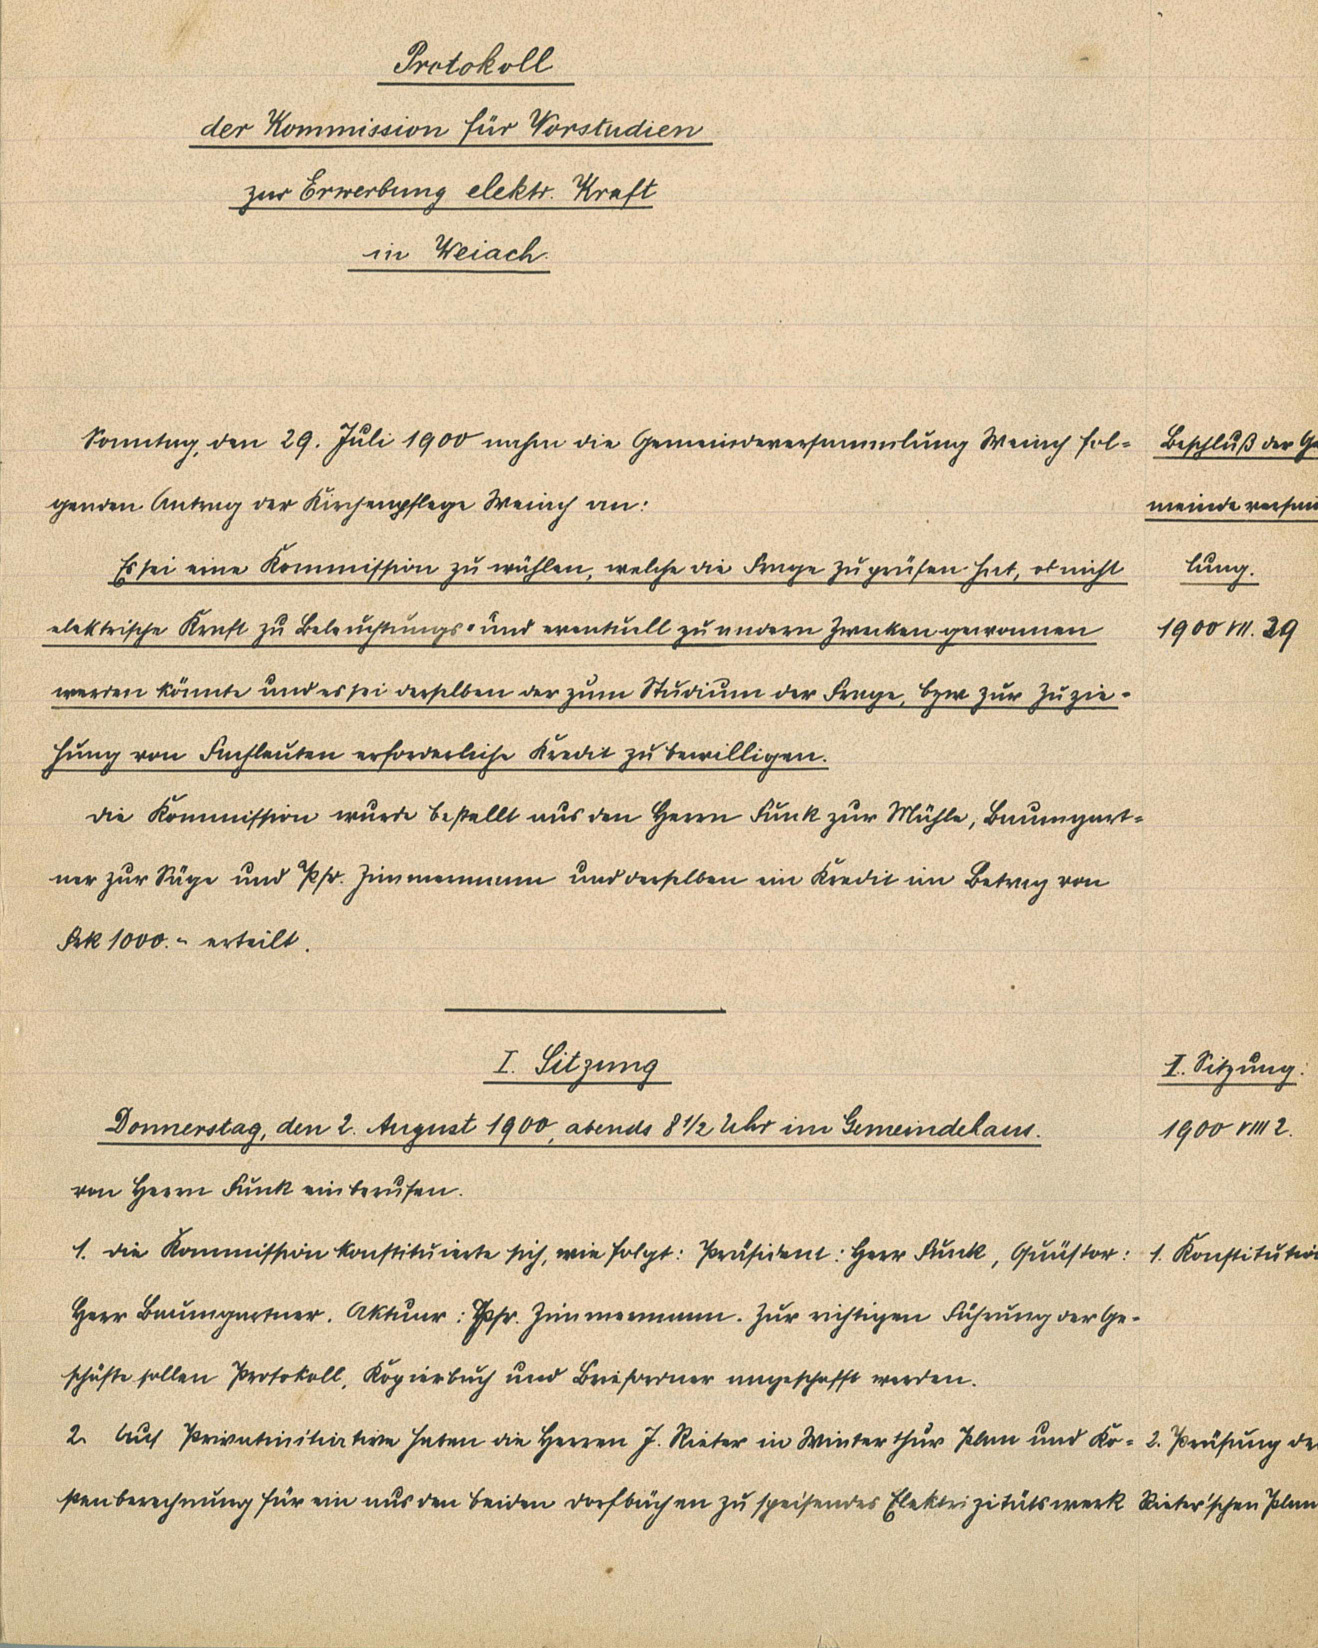 Protokoll
der Kommission für Vorstudien
zur Erwerbung elektr. Kraft
in Weiach.
Sonntag, den 29. Juli 1900 nahm die Gemeindeversammlung Weiach fol=
genden Antrag der Kirchenpflege Weiach an:
Es sei eine Kommission zu wählen, welche die Frage zu prüfen hat, ob nicht
elektrische Kraft zu Beleuchtungs- und eventuell zu andern Zwecken gewonnen
werden könnte und es sei derselben der zum Studium der Frage, bzw zur Zuzie-
hung von Fachleuten erforderliche Kredit zu bewilligen.
Beschluß der Ge
meindeversam
lung.
1900 VII. 29
Die Kommission wurde bestellt aus den Herrn Funk zur Mühle, Baumgart=
ner zur Säge und Pfr. Zimmermann und derselben ein Kredit im Betrag von
Frk 1000.- erteilt.
I. Sitzung
I. Sitzung:
Donnerstag, den 2. August 1900, abends 8 1/2 Uhr im Gemeindehaus.
1900 VIII 2.
von Herrn Funk einberufen.
1. Die Kommission konstituierte sich, wie folgt: Präsident: Herr Funk, Quästor:
1. Konstitution
Herr Baumgartner. Aktuar: Pfr. Zimmermann. Zur richtigen Führung der Ge-
schäfte sollen Protokoll, Kopierbuch und Briefordner angeschafft werden.
2. Auf Privatinitiative haben die Herren J. Rieter in Winterthur Plan und Ko=
2. Prüfung de
stenberechnung für ein aus den beiden Dorfbächen zu speisendes Elektrizitätswerk
Rieter'schen Plan